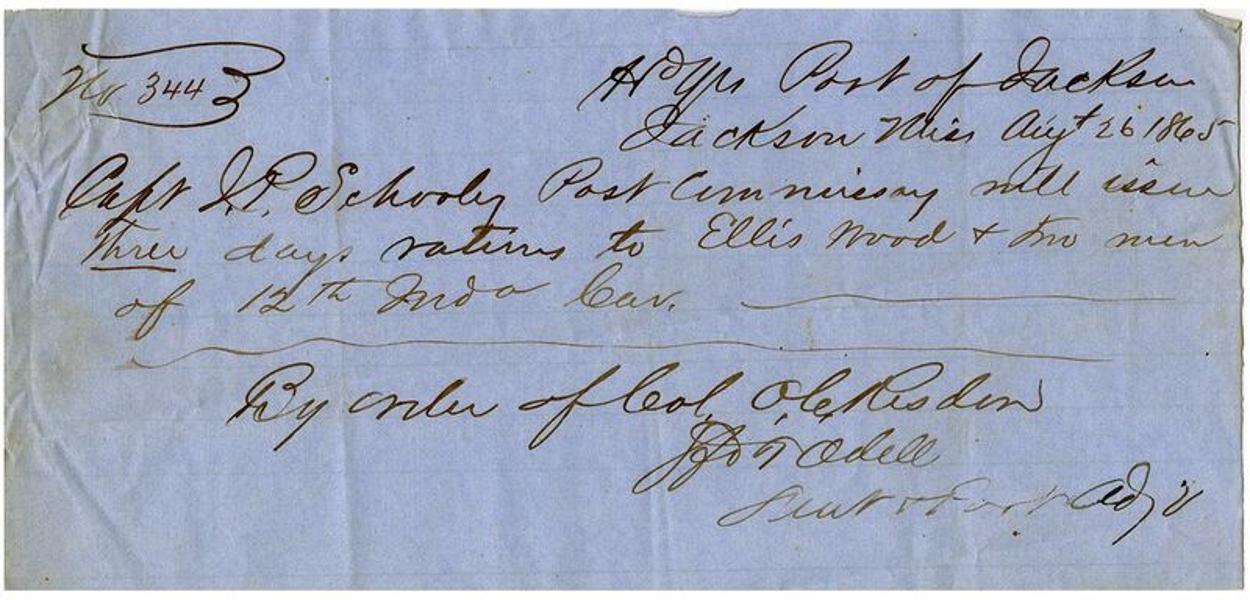 No 344
Hd Qrs Post of Jackson
Jackson Miss Augt 26 1865
Capt J.P. Schooley Post Commissary will issue
three days rations to Ellis Wood & two men
of 12th Inda Cav.
By order of Col, O.C. Risdon
Odell
Lieut & Post Adj't